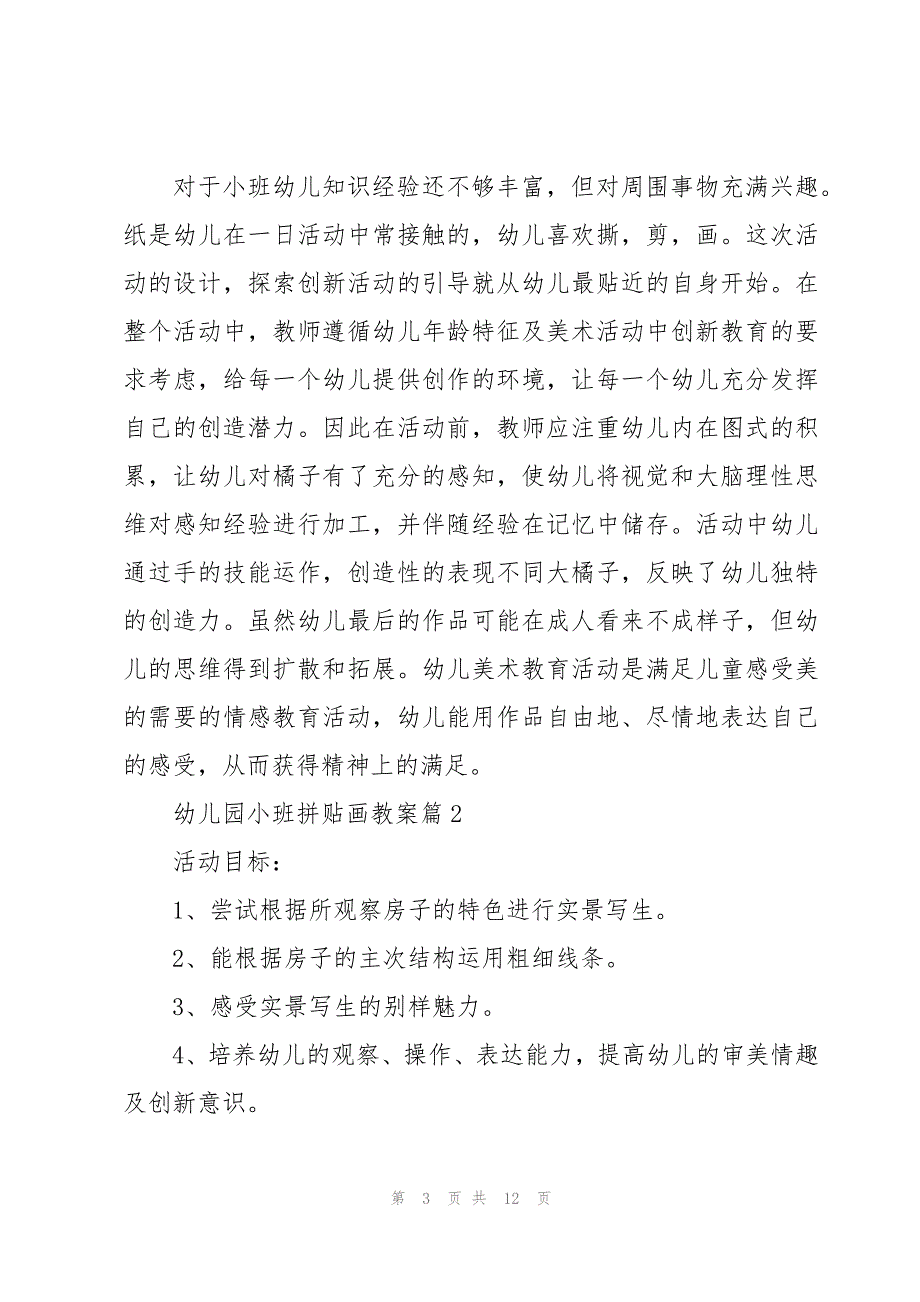 对于小班幼儿知识经验还不够丰富，但对周围事物充满兴趣。
纸是幼儿在一日活动中常接触的，幼儿喜欢撕，剪，画。这次活
动的设计，探索创新活动的引导就从幼儿最贴近的自身开始。在
整个活动中，教师遵循幼儿年龄特征及美术活动中创新教育的要
求考虑，给每一个幼儿提供创作的环境，让每一个幼儿充分发挥
自己的创造潜力。因此在活动前，教师应注重幼儿内在图式的积
累，让幼儿对橘子有了充分的感知，使幼儿将视觉和大脑理性思
维对感知经验进行加工，并伴随经验在记忆中储存。活动中幼儿
通过手的技能运作，创造性的表现不同大橘子，反映了幼儿独特
的创造力。虽然幼儿最后的作品可能在成人看来不成样子，但幼
儿的思维得到扩散和拓展。幼儿美术教育活动是满足儿童感受美
的需要的情感教育活动，幼儿能用作品自由地、尽情地表达自己
的感受，从而获得精神上的满足。
幼儿园小班拼贴画教案篇2
活动目标：
1、尝试根据所观察房子的特色进行实景写生。
2、能根据房子的主次结构运用粗细线条。
3、感受实景写生的别样魅力。
4、培养幼儿的观察、操作、表达能力，提高幼儿的审美情趣
及创新意识。
第 3 页 共 12 页